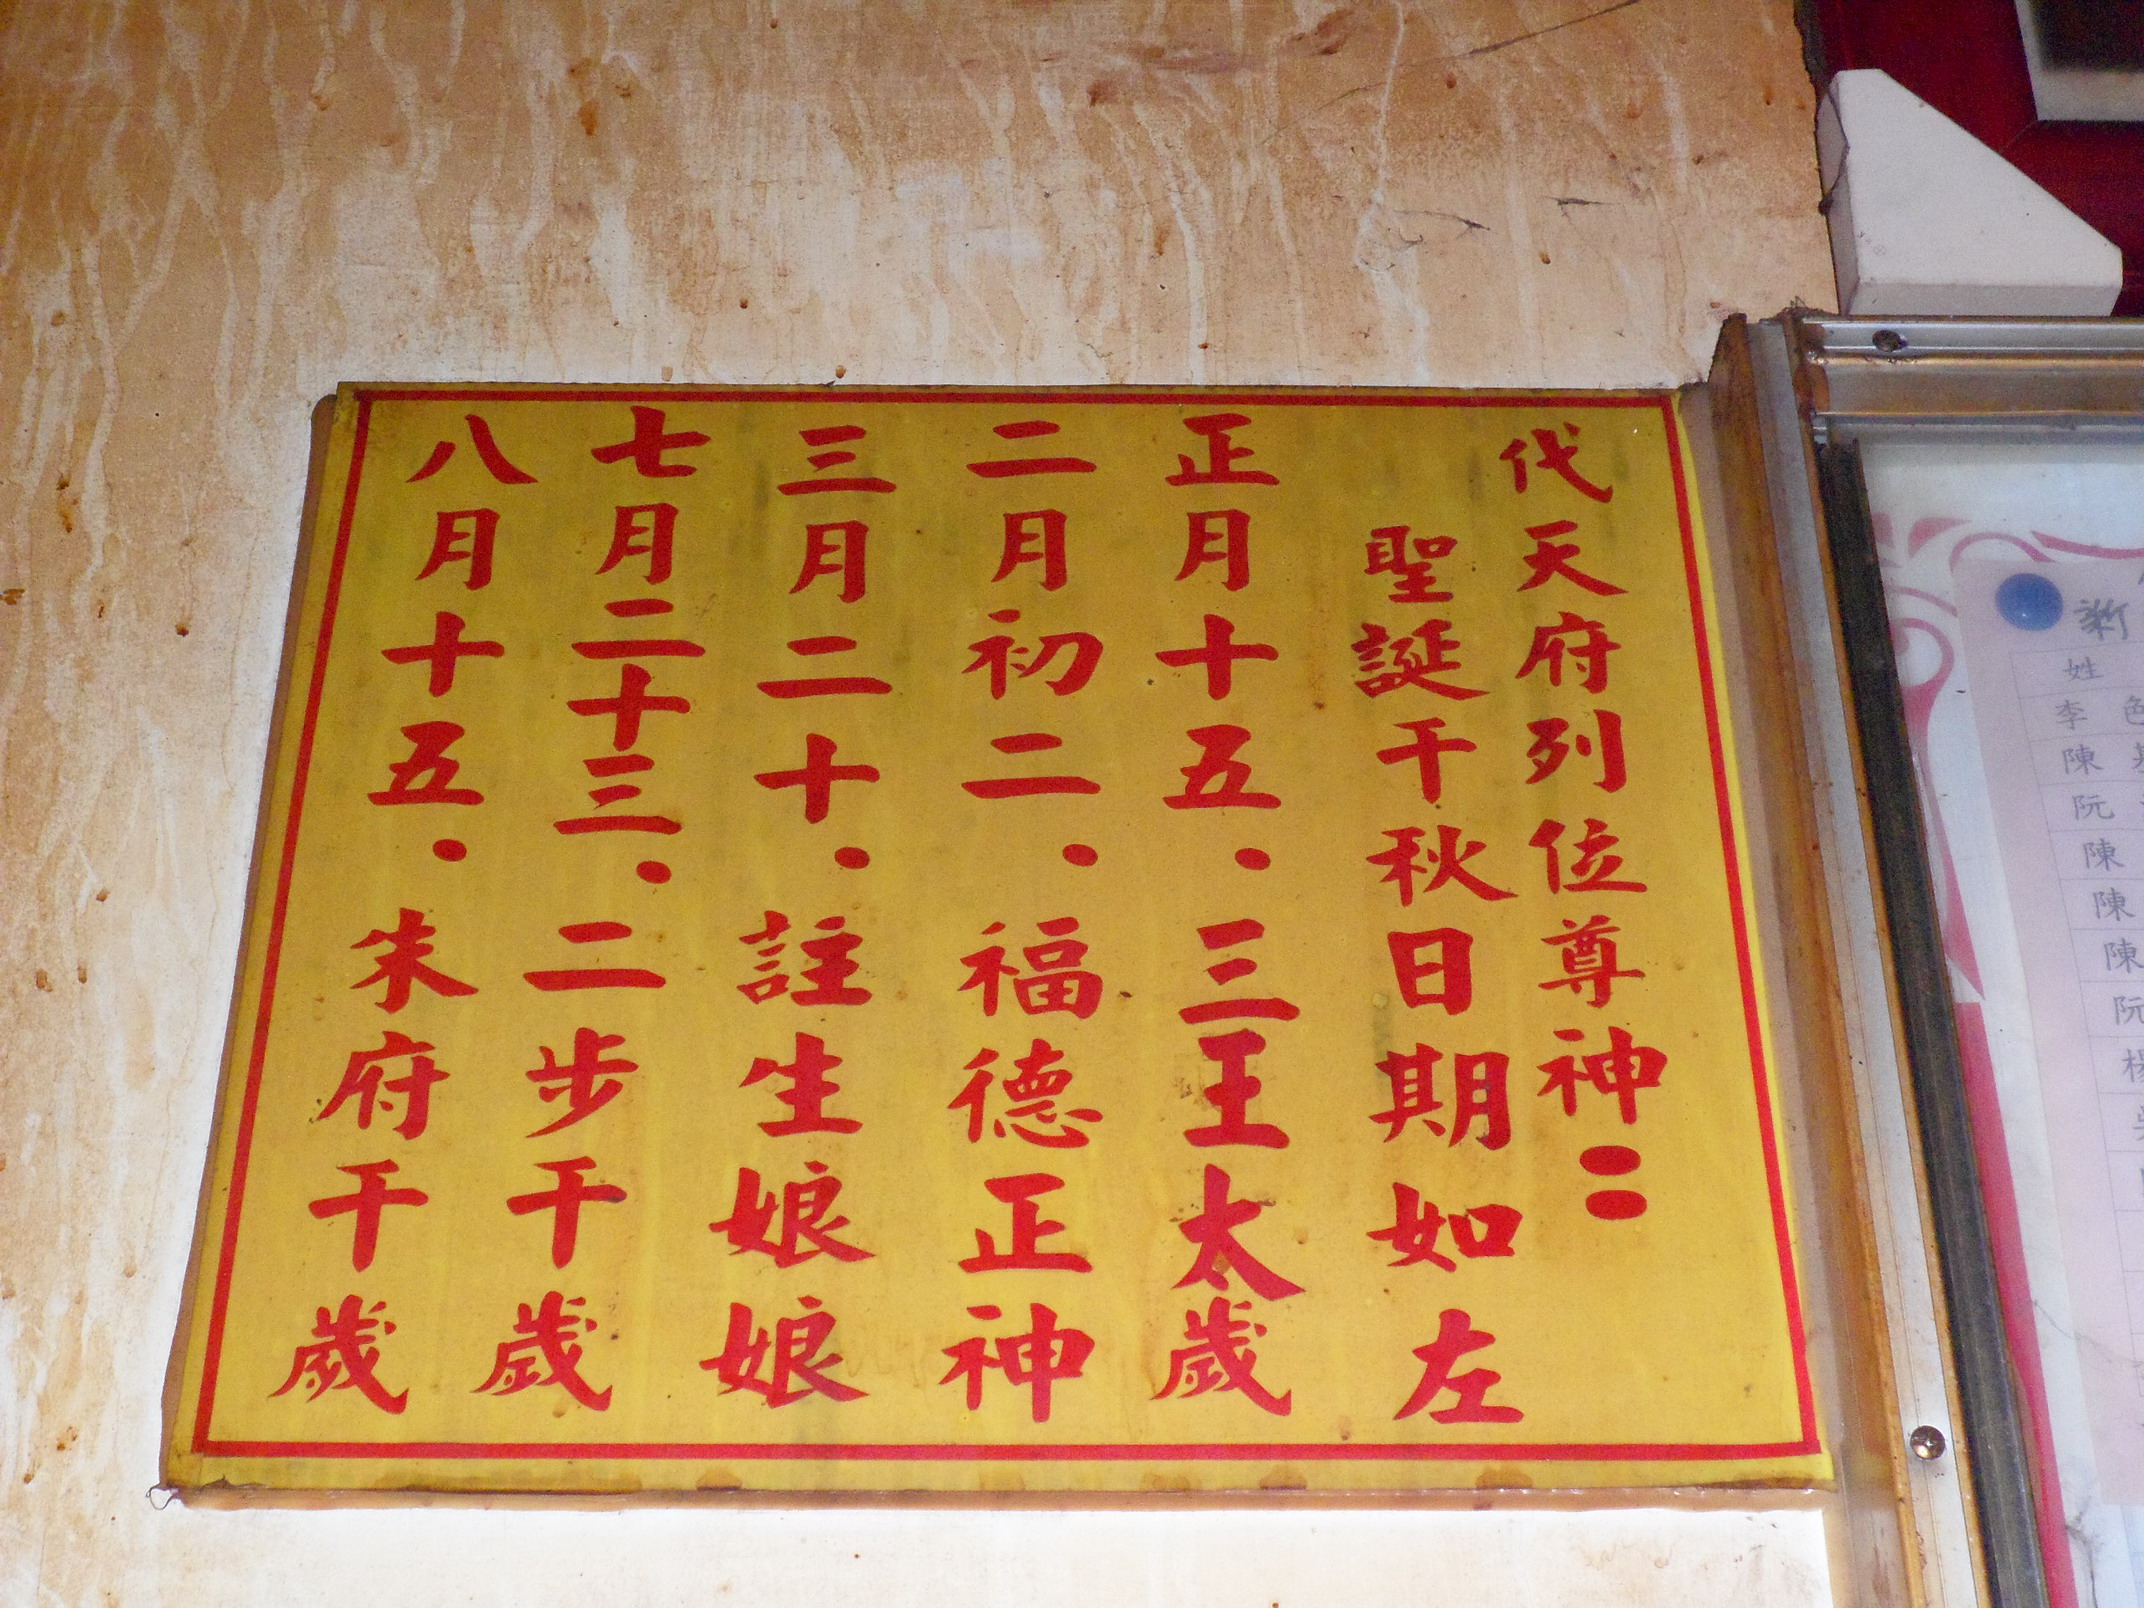 代天府列位尊神：
聖誕千秋日期如左
正月十五．三王太歲
二月初二．福德正神
三月二十．註生娘娘
七月二十三．二步千歲
八月十五．朱府千歲
新
姓
李 色
陳
阮
陳
陳
陳
阮
楊